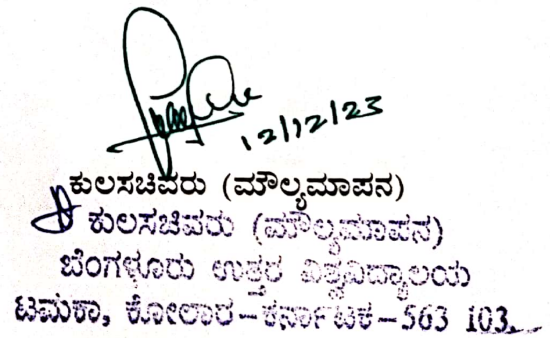 12/12/23
ಕುಲಸಚಿವರು (ಮೌಲ್ಯಮಾಪನ)
ಕುಲಸಚಿವರು (ಮೌಲ್ಯಮಾಪನ)
ಬೆಂಗಳೂರು ಉತ್ತರ ವಿಶ್ವವಿದ್ಯಾಲಯ
ಟಮಕಾ, ಕೋಲಾರ-ಕರ್ನಾಟಕ-563 103.